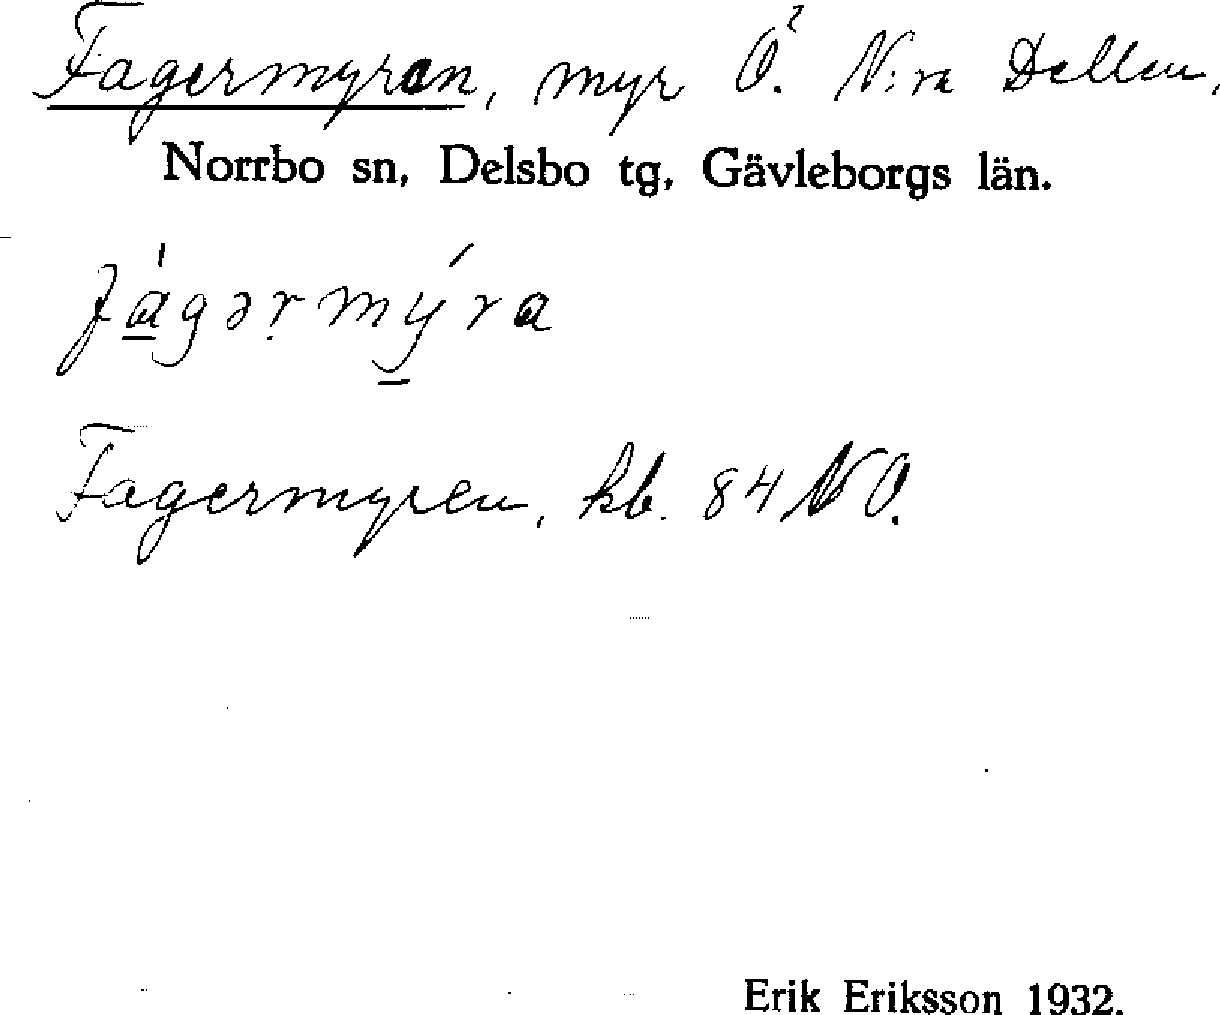 Fagermyran, myr Ö. N:ra Dellen,
Norrbo sn, Delsbo tg, Gävleborgs län.
fá̱gərmý̱ra
Fagermyren, kb. 84 NO.
Erik Eriksson 1932.